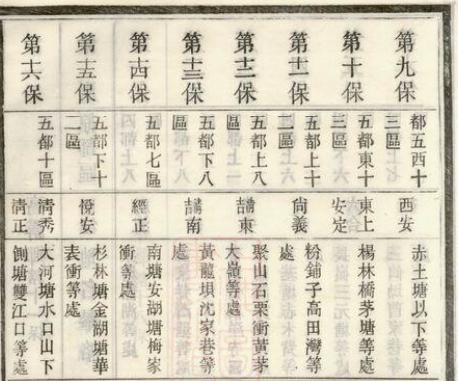 第九保 都五西十三區 西安 赤土塘以下等處
第十保 五都東十三區 東上安定 楊林橋茅塘等處
第十一保 五都上十二區 尚義 粉鋪子高田灣等處
第十二保 五都上八區 東 聚山石栗衝黃茅大嶺等處
第十三保 五都下八區 南 黃龍埧沈家巷等處
第十四保 五都七區 經正 南塘安湖塘梅家衝等處
第十五保 五都下十二區 悅安 杉林塘金湖塘華表衝等處
第十六保 五都十區 清秀清正 大河塘水口山下側塘雙江口等處